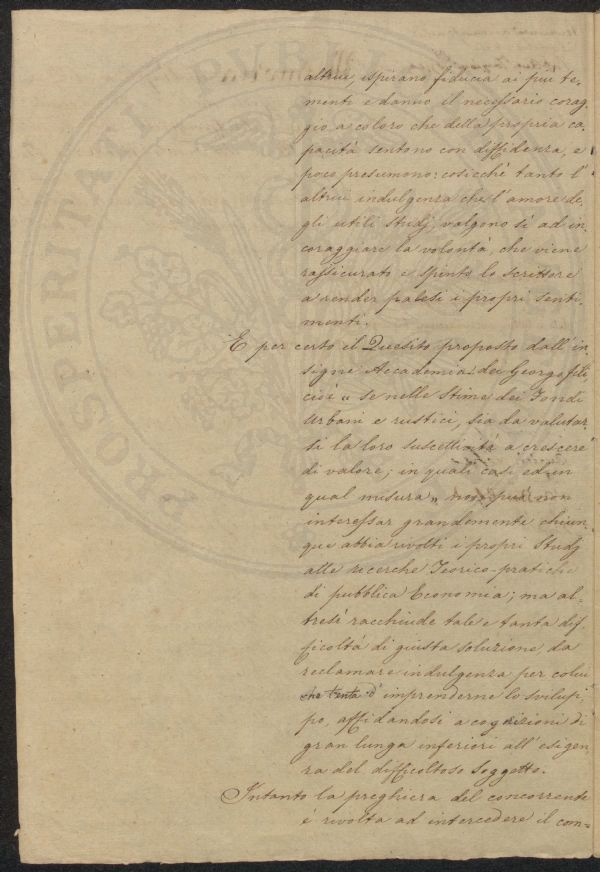 altrui, ispirano fiducia ai più te-
menti e danno il necessario corag-
gio a coloro che della propria ca-
pacità sentono con diffidenza, e
poco presumono: cosicchè tanto l'
altrui indulgenza che l'amore de-
gli utili studj, valgono sì ad in-
coraggiare la volontà, che viene
rassicurato e spinto lo scrittore
a render palesi i propri senti-
menti.
E per certo il Quesito proposto dall'in-
signe Accademia dei Georgofili
cioè „ se nelle Stime dei Fondi
Urbani e rustici, sia da valutar-
si la loro suscettività a crescere
di valore; in quali casi ed in
qual misura „ non può non
interessar grandemente chiun-
que abbia rivolti i propri Studj
alle ricerche Teorico-pratiche
di pubblica Economia; ma al-
tresì racchiude tale e tanta dif-
ficoltà di giusta soluzione da
reclamare indulgenza per colui
che tenta d'imprenderne lo svilup-
po, affidandosi a cognizioni di
gran lunga inferiori all'esigen-
za del difficoltoso soggetto.
Intanto la preghiera del concorrente
è rivolta ad intercedere il com-
PROSPERITATI PUBLI